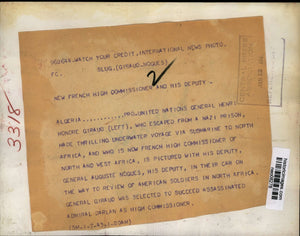 960648..WATCH YOUR CREDIT..INTERNATIONAL NEWS PHOTO.
FC. SLUG.(GIRAUD.NOGUES)
2
NEW FRENCH HIGH COMMISSIONER AND HIS DEPUTY
ALGERIA............PRO-UNITED NATIONS GENERAL HENRI
HONORE GIRAUD (LEFT), WHO ESCAPED FROM A NAZI PRISON,
MADE THRILLING UNDERWATER VOYAGE VIA SUBMARINE TO NORTH
AFRICA, AND WHO IS NOW FRENCH HIGH COMMISSIONER OF
NORTH AND WEST AFRICA, IS PICTURED WITH HIS DEPUTY,
GENERAL AUGUSTE NOGUES, IN THEIR CAR ON
THE WAY TO REVIEW OF AMERICAN SOLDIERS IN NORTH AFRICA.
GENERAL GIRAUD WAS SELECTED TO SUCCEED ASSASSINATED
ADMIRAL DARLAN AS HIGH COMMISSIONER.
3318